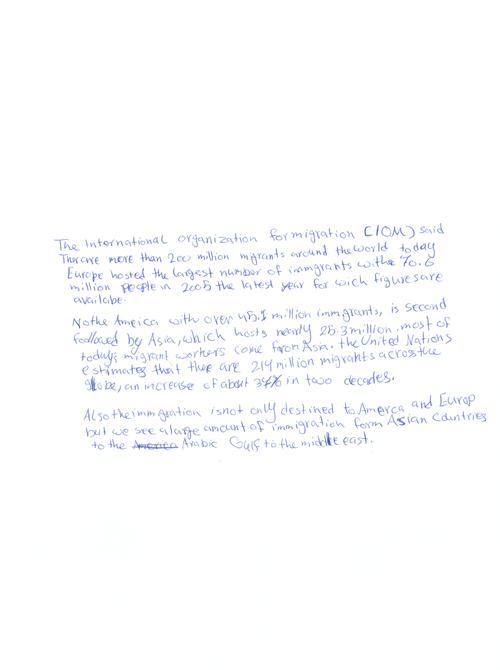 The International organization for migration (IOM) said
Thereare more than 200 million migrants around the world today
Europe hosted the largest number of immigrants with 70.6
million people in 2005 the latest year for wich figures are
availabe.
Nothe Ameica with over 45.1 million immigrants, is second
foollowed by Asia, which hosts nearly 25.3 million. most of
today's migrant workers come foron Asia. the United Nations
estimates that there are 214 million migrants across the
globe, an increase of about 37% in two decades.
Also the immigration is not only destined to Amerca and Europ
but we see a large amount of immigration form Asian Countries
to the America Arabic Gulf to the middle east.